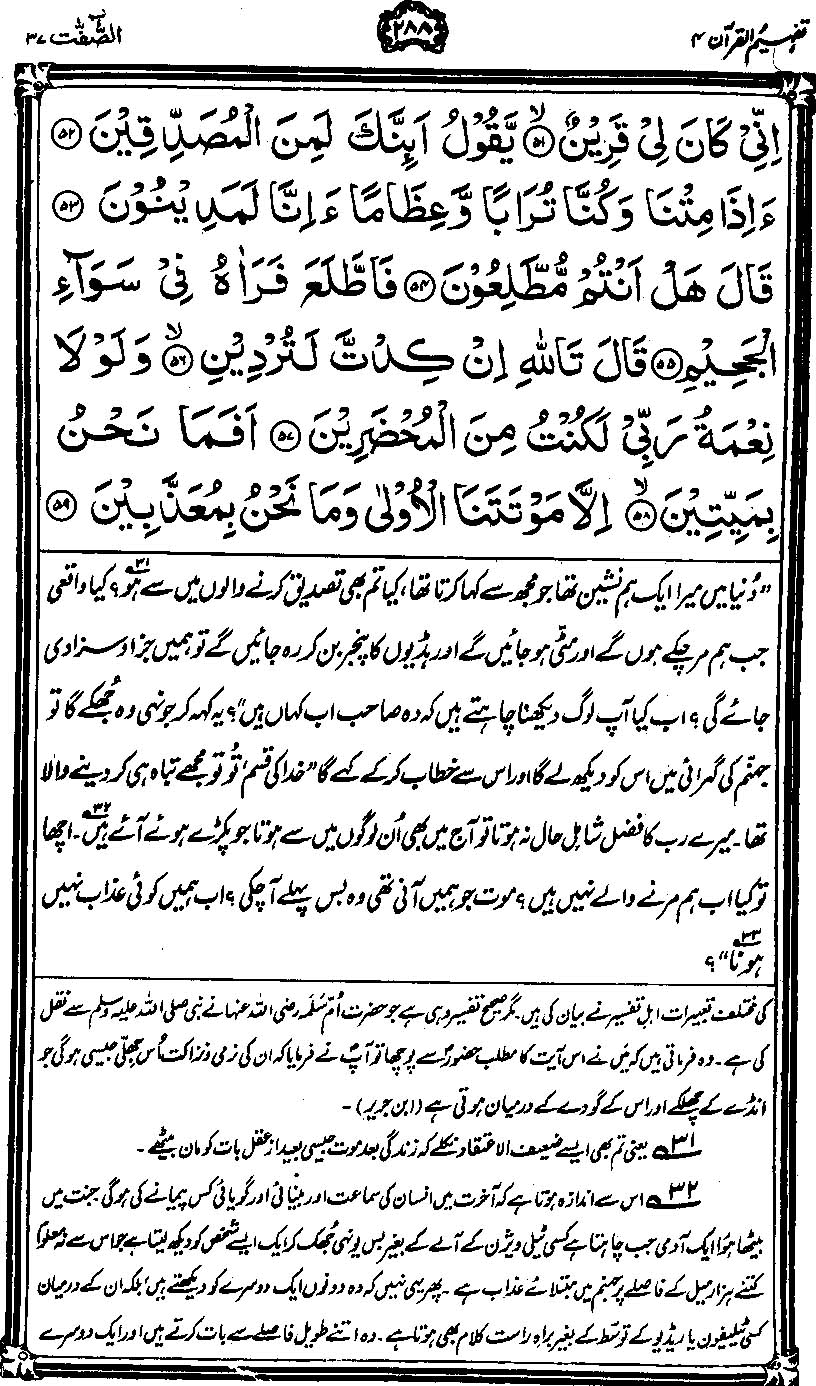 تفہیم القرآن ۴
۲۸۸
الصّٰفّٰت ۳۷
اِنِّیْ كَانَ لِیْ قَرِیْنٌ ﴿۵۱﴾ۙ یَّقُوْلُ اَىِٕنَّكَ لَمِنَ الْمُصَدِّقِیْنَ ﴿۵۲﴾
ءَاِذَا مِتْنَا وَ كُنَّا تُرَابًا وَّ عِظَامًا ءَاِنَّا لَمَدِیْنُوْنَ ﴿۵۳﴾
قَالَ هَلْ اَنْتُمْ مُّطَّلِعُوْنَ ﴿۵۴﴾ فَاطَّلَعَ فَرَاٰهُ فِیْ سَوَآءِ
الْجَحِیْمِ ﴿۵۵﴾ قَالَ تَاللّٰهِ اِنْ كِدْتَّ لَتُرْدِیْنِ ﴿۵۶﴾ۙ وَ لَوْ لَا
نِعْمَةُ رَبِّیْ لَكُنْتُ مِنَ الْمُحْضَرِیْنَ ﴿۵۷﴾ اَفَمَا نَحْنُ
بِمَیِّتِیْنَ ﴿۵۸﴾ۙ اِلَّا مَوْتَتَنَا الْاُوْلٰی وَ مَا نَحْنُ بِمُعَذَّبِیْنَ ﴿۵۹﴾
”دُنیا میں میرا ایک ہم نشین تھا جو مجھ سے کہا کرتا تھا، کیا تم بھی تصدیق کرنے والوں میں سے ہو۳۱؟ کیا واقعی
جب ہم مر چکے ہوں گے اور مٹی ہو جائیں گے اور ہڈیوں کا پنجر بن کر رہ جائیں گے تو ہمیں جزا و سزا دی
جائے گی؟ اب کیا آپ لوگ دیکھنا چاہتے ہیں کہ وہ صاحب اب کہاں ہیں“؟ یہ کہہ کر جونہی وہ جُھکے گا تو
جہنم کی گہرائی میں اس کو دیکھ لے گا اور اس سے خطاب کر کے کہے گا ”خدا کی قسم، تُو تو مجھے تباہ ہی کر دینے والا
تھا۔ میرے رب کا فضل شاملِ حال نہ ہوتا تو آج میں بھی اُن لوگوں میں سے ہوتا جو پکڑے ہوئے آئے ہیں۳۲۔ اچھا
تو کیا اب ہم مرنے والے نہیں ہیں؟ موت جو ہمیں آنی تھی وہ بس پہلے آ چکی؟ اب ہمیں کوئی عذاب نہیں
ہونا۳۳“؟
کی مختلف تعبیرات اہلِ تفسیر نے بیان کی ہیں۔ مگر صحیح تفسیر وہی ہے جو حضرت اُمّ سَلَمہ رضی اللہ عنہا نے نبی صلی اللہ علیہ وسلم سے نقل
کی ہے۔ وہ فرماتی ہیں کہ میں نے اس آیت کا مطلب حضورؐ سے پوچھا تو آپؐ نے فرمایا کہ ان کی نرمی و نزاکت اُس جھِلّی جیسی ہوگی جو
انڈے کے چھلکے اور اس کے گودے کے درمیان ہوتی ہے (ابن جریر)۔
۳۱ یعنی تم بھی ایسے ضعیف الاعتقاد نکلے کہ زندگی بعد موت جیسی بعید از عقل بات کو مان بیٹھے۔
۳۲ اس سے اندازہ ہوتا ہے کہ آخرت میں انسان کی سماعت اور بینائی اور گویائی کس پیمانے کی ہوگی۔ جنت میں
بیٹھا ہوا ایک آدمی جب چاہتا ہے کسی ٹیلی ویژن کے آلے کے بغیر بس یونہی جُھک کر ایک ایسے شخص کو دیکھ لیتا ہے جو اس سے نہ معلوم
کتنے ہزار میل کے فاصلے پر جہنم میں مبتلائے عذاب ہے۔ پھر یہی نہیں کہ وہ دونوں ایک دوسرے کو دیکھتے ہیں، بلکہ ان کے درمیان
کسی ٹیلیفون یا ریڈیو کے توسط کے بغیر براہِ راست کلام بھی ہوتا ہے۔ وہ اتنے طویل فاصلے سے بات کرتے ہیں اور ایک دوسرے